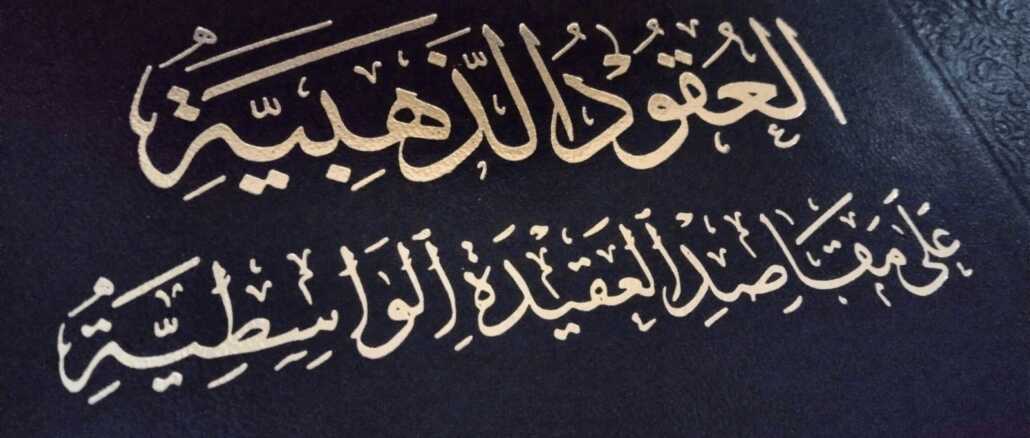 العُقُودُ الذَّهَبِيَّةُ
عَلَى مَقَاصِدِ العَقِيْدَةِ الوَاسِطِيَّةِ